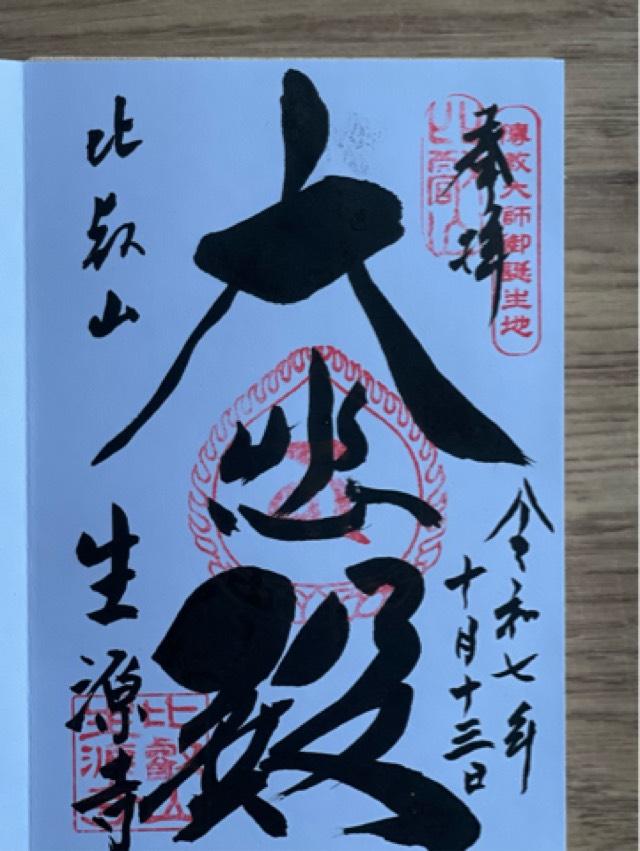 奉拝
傳教大師御誕生地
令和七年
十月十三日
大悲殿
比叡山
生源寺
比叡山
生源寺